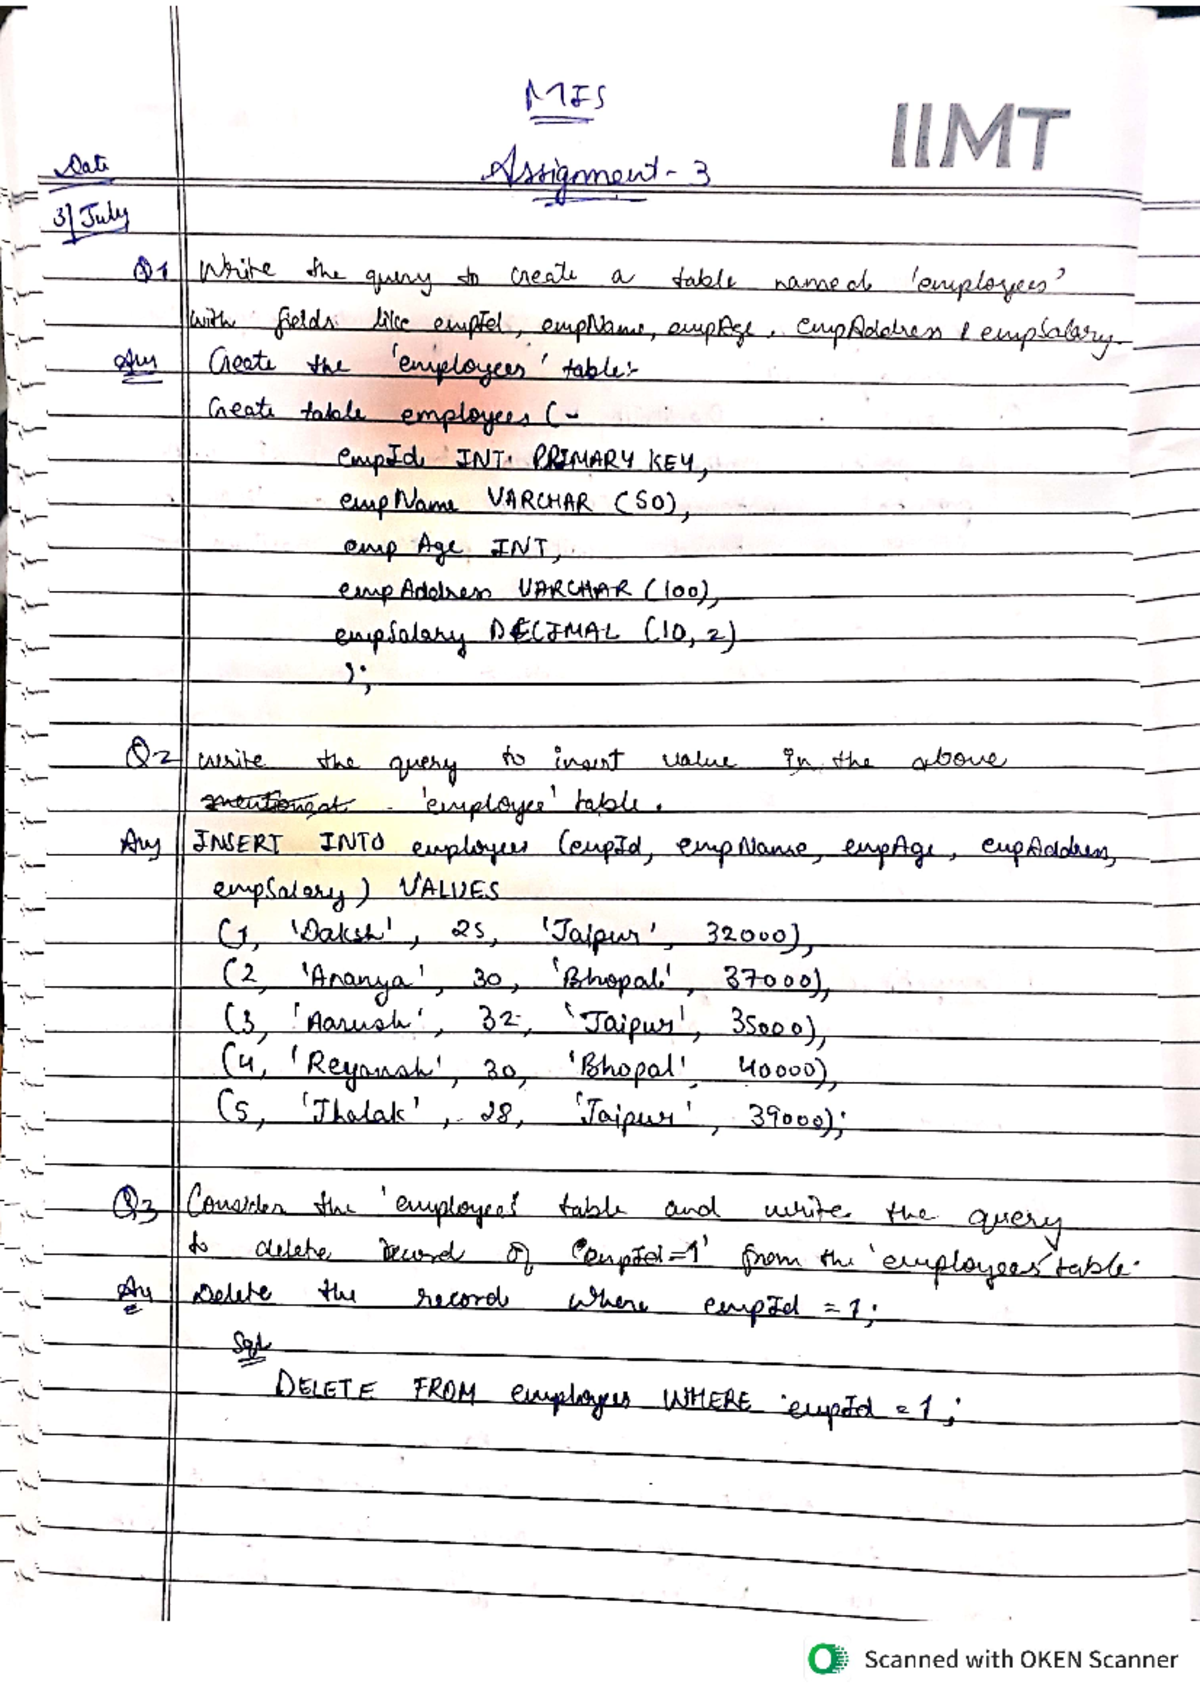 MIS
IIMT
Date
Assignment - 3
31 July
Q1 Write the query to create a table named 'employees'
with fields like empId, empName, empAge, empAddress & empSalary.
Ans Create the 'employees' table:-
Create table employees (-
empId INT PRIMARY KEY,
empName VARCHAR (50),
emp Age INT,
empAddress VARCHAR (100),
empSalary DECIMAL (10, 2)
);
Q2 write the query to insert value in the above
mentioned 'employee' table.
Ans INSERT INTO employees (empId, empName, empAge, empAddress,
empSalary) VALUES
(1, 'Daksh', 25, 'Jaipur', 32000),
(2, 'Ananya', 30, 'Bhopal', 37000),
(3, 'Aarush', 32, 'Jaipur', 35000),
(4, 'Reyansh', 30, 'Bhopal', 40000),
(5, 'Jhalak', 28, 'Jaipur', 39000);
Q3 Consider the 'employees' table and write the query
to delete record of 'empId=1' from the 'employees' table.
Ans Delete the record where empId = 1;
Sql
DELETE FROM employees WHERE empId = 1;
Scanned with OKEN Scanner